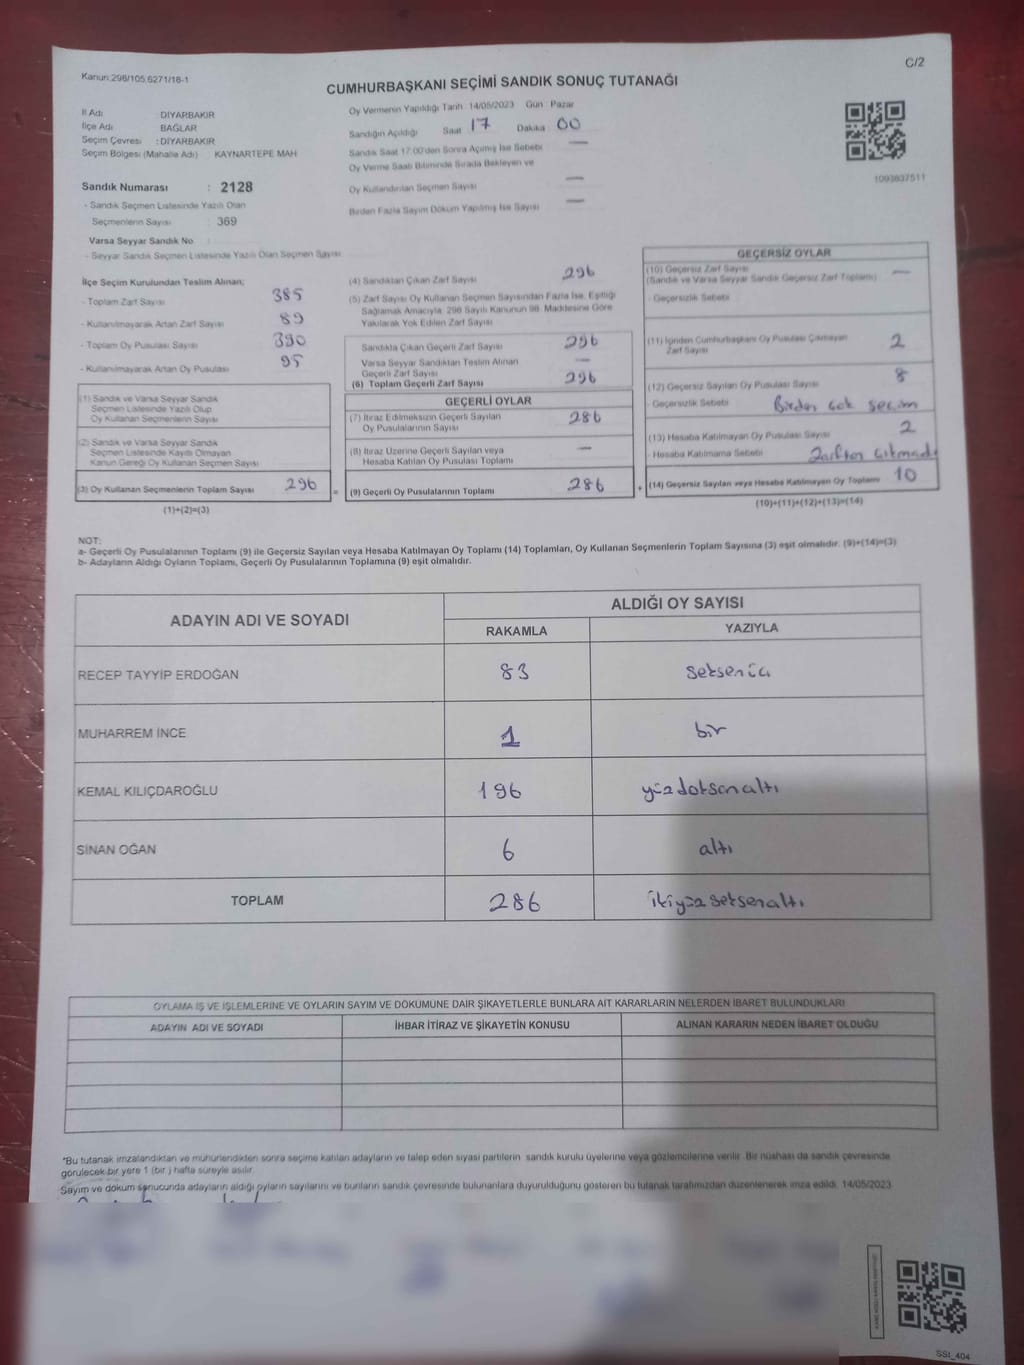 C/2
Kanun:298/105,6271/18-1
CUMHURBAŞKANI SEÇİMİ SANDIK SONUÇ TUTANAĞI
İl Adı DİYARBAKIR
İlçe Adı BAĞLAR
Seçim Çevresi : DİYARBAKIR
Seçim Bölgesi (Mahalle Adı) KAYNARTEPE MAH
Sandık Numarası : 2128
- Sandık Seçmen Listesinde Yazılı Olan
Seçmenlerin Sayısı : 369
Varsa Seyyar Sandık No
- Seyyar Sandık Seçmen Listesinde Yazılı Olan Seçmen Sayısı
Oy Vermenin Yapıldığı Tarih 14/05/2023 Gün Pazar
Sandığın Açıldığı Saat 17 Dakika 00
Sandık Saat 17:00'den Sonra Açımış İse Sebebi —
Oy Verme Saati Bitiminde Sırada Bekleyen ve
Oy Kullandırılan Seçmen Sayısı —
Birden Fazla Sayım Döküm Yapılmış İse Sayısı —
1093837511
İlçe Seçim Kurulundan Teslim Alınan;
- Toplam Zarf Sayısı 385
- Kullanılmayarak Artan Zarf Sayısı 89
- Toplam Oy Pusulası Sayısı 390
- Kullanılmayarak Artan Oy Pusulası 95
(1) Sandık ve Varsa Seyyar Sandık
Seçmen Listesinde Yazılı Olup
Oy Kullanan Seçmenlerin Sayısı
(2) Sandık ve Varsa Seyyar Sandık
Seçmen Listesinde Kayıtlı Olmayan
Kanun Gereği Oy Kullanan Seçmen Sayısı
(3) Oy Kullanan Seçmenlerin Toplam Sayısı 296
(1)+(2)=(3)
(4) Sandıktan Çıkan Zarf Sayısı 296
(5) Zarf Sayısı Oy Kullanan Seçmen Sayısından Fazla İse, Eşitliği
Sağlamak Amacıyla, 298 Sayılı Kanunun 98. Maddesine Göre
Yakılarak Yok Edilen Zarf Sayısı
Sandıkta Çıkan Geçerli Zarf Sayısı 296
Varsa Seyyar Sandıktan Teslim Alınan
Geçerli Zarf Sayısı —
(6) Toplam Geçerli Zarf Sayısı 296
GEÇERLİ OYLAR
(7) İtiraz Edilmeksizin Geçerli Sayılan
Oy Pusulalarının Sayısı 286
(8) İtiraz Üzerine Geçerli Sayılan veya
Hesaba Katılan Oy Pusulası Toplamı —
= (9) Geçerli Oy Pusulalarının Toplamı 286 +
GEÇERSİZ OYLAR
(10) Geçersiz Zarf Sayısı —
(Sandık ve Varsa Seyyar Sandık Geçersiz Zarf Toplamı)
- Geçersizlik Sebebi
(11) İçinden Cumhurbaşkanı Oy Pusulası Çıkmayan
Zarf Sayısı 2
(12) Geçersiz Sayılan Oy Pusulası Sayısı 8
- Geçersizlik Sebebi Birden çok seçim
(13) Hesaba Katılmayan Oy Pusulası Sayısı 2
- Hesaba Katılmama Sebebi Zarftan çıkmadı
(14) Geçersiz Sayılan veya Hesaba Katılmayan Oy Toplamı 10
(10)+(11)+(12)+(13)=(14)
NOT:
a- Geçerli Oy Pusulalarının Toplamı (9) ile Geçersiz Sayılan veya Hesaba Katılmayan Oy Toplamı (14) Toplamları, Oy Kullanan Seçmenlerin Toplam Sayısına (3) eşit olmalıdır. (9)+(14)=(3)
b- Adayların Aldığı Oyların Toplamı, Geçerli Oy Pusulalarının Toplamına (9) eşit olmalıdır.
ADAYIN ADI VE SOYADI ALDIĞI OY SAYISI
RAKAMLA YAZIYLA
RECEP TAYYİP ERDOĞAN 83 seksenüç
MUHARREM İNCE 1 bir
KEMAL KILIÇDAROĞLU 196 yüzdoksanaltı
SİNAN OĞAN 6 altı
TOPLAM 286 ikiyüzseksenaltı
OYLAMA İŞ VE İŞLEMLERİNE VE OYLARIN SAYIM VE DÖKÜMÜNE DAİR ŞİKAYETLERLE BUNLARA AİT KARARLARIN NELERDEN İBARET BULUNDUKLARI
ADAYIN ADI VE SOYADI İHBAR İTİRAZ VE ŞİKAYETİN KONUSU ALINAN KARARIN NEDEN İBARET OLDUĞU
*Bu tutanak imzalandıktan ve mühürlendikten sonra seçime katılan adayların ve talep eden siyasi partilerin sandık kurulu üyelerine veya gözlemcilerine verilir. Bir nüshası da sandık çevresinde
görülecek bir yere 1 (bir ) hafta süreyle asılır.
Sayım ve döküm sonucunda adayların aldığı oyların sayılarını ve bunların sandık çevresinde bulunanlara duyurulduğunu gösteren bu tutanak tarafımızdan düzenlenerek imza edildi. 14/05/2023
SSt_404